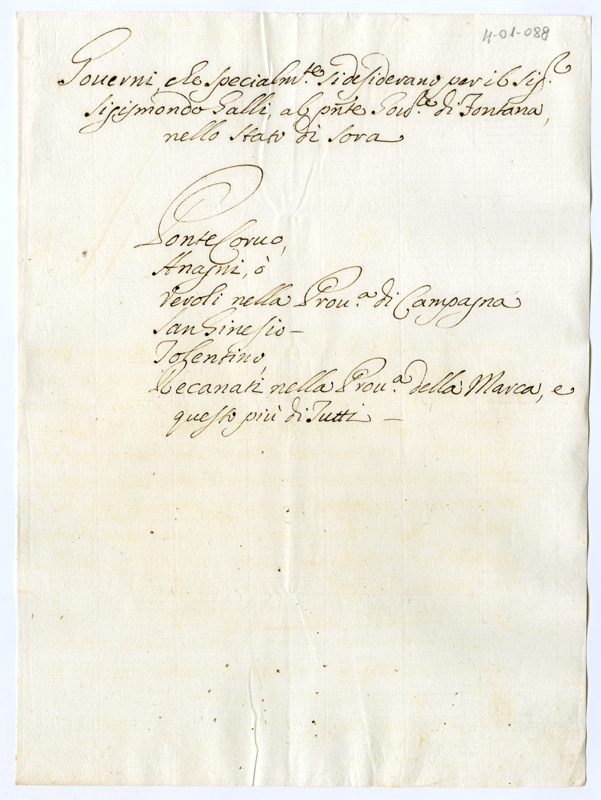 4-01-088
Governi, che specialm.te si desiderano per il Sig.r
Sigismondo Galli, al pnte Gov.re di Fontana,
nello Stato di Sora
PonteCorvo,
Anagni, ò
Veroli nella Prou.a di Campagna
San Ginesio –
Tolentino,
Recanati nella Prou.a della Marca, e
questo più di Tutti –